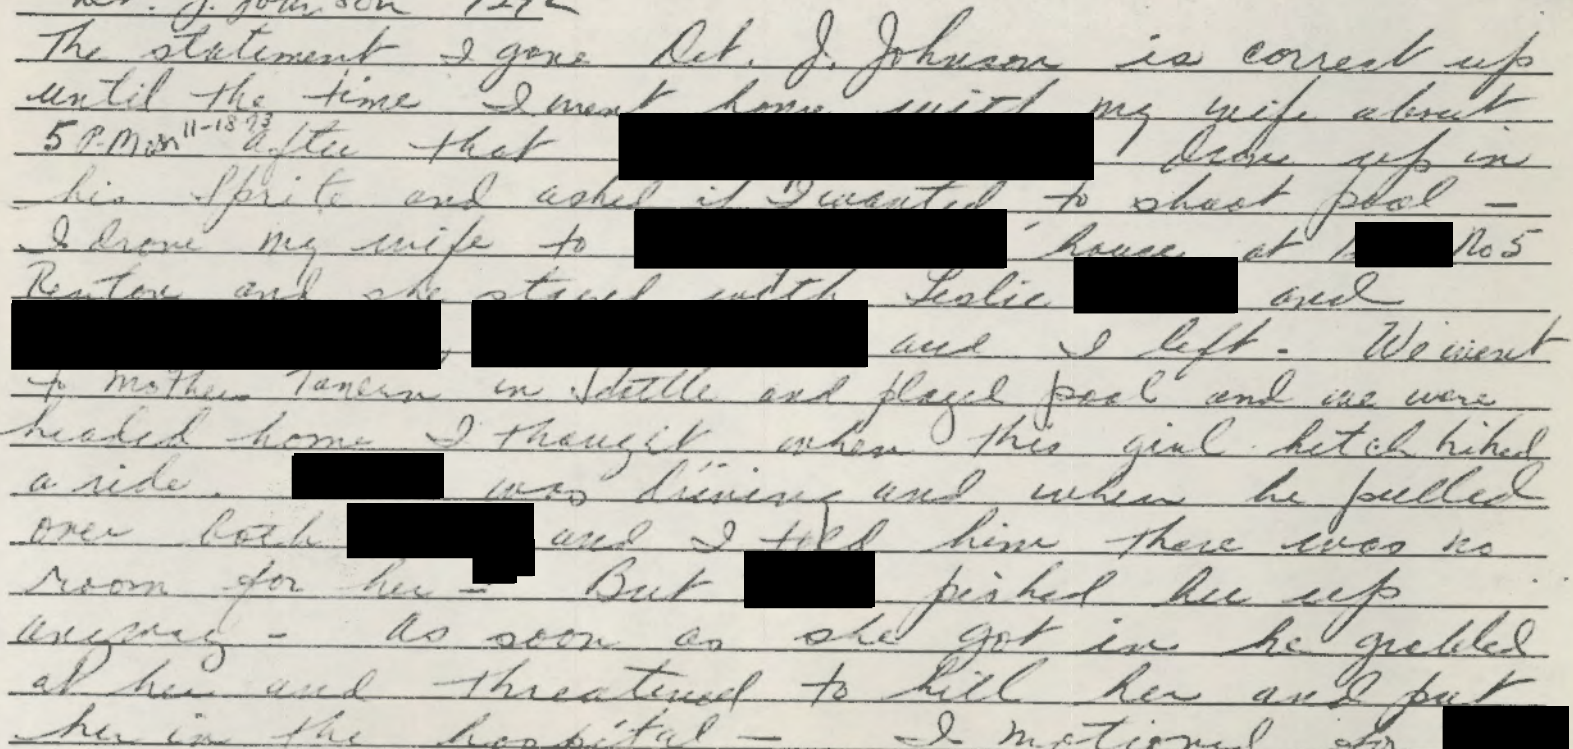 Det. J. Johnson
The statement I gave Det. J. Johnson is correct up
until the time I went home with my wife about
5 P.M. on 11-18-73 After that drove up in
his Sprite and asked if I wanted to shoot pool -
I drove my wife to house at No 5
Renton and she stayed with Leslie and
, and I left. We went
to Mothers Tavern in Seattle and played pool and we were
headed home I thought when this girl hitch hiked
a ride. was driving and when he pulled
over both and I told him there was no
room for her - But picked her up
anyway - As soon as she got in he grabbed
at her and threatened to kill her and put
her in the hospital - I motioned for